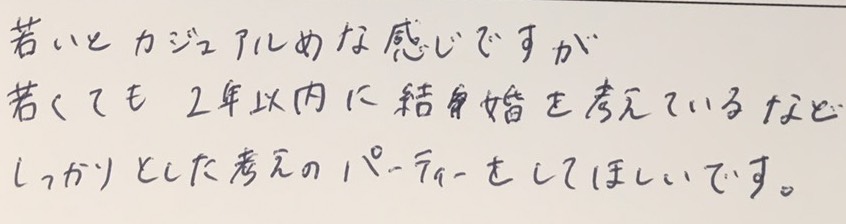 若いとカジュアルめな感じですが
若くても2年以内に結婚を考えているなど
しっかりとした考えのパーティーをしてほしいです。